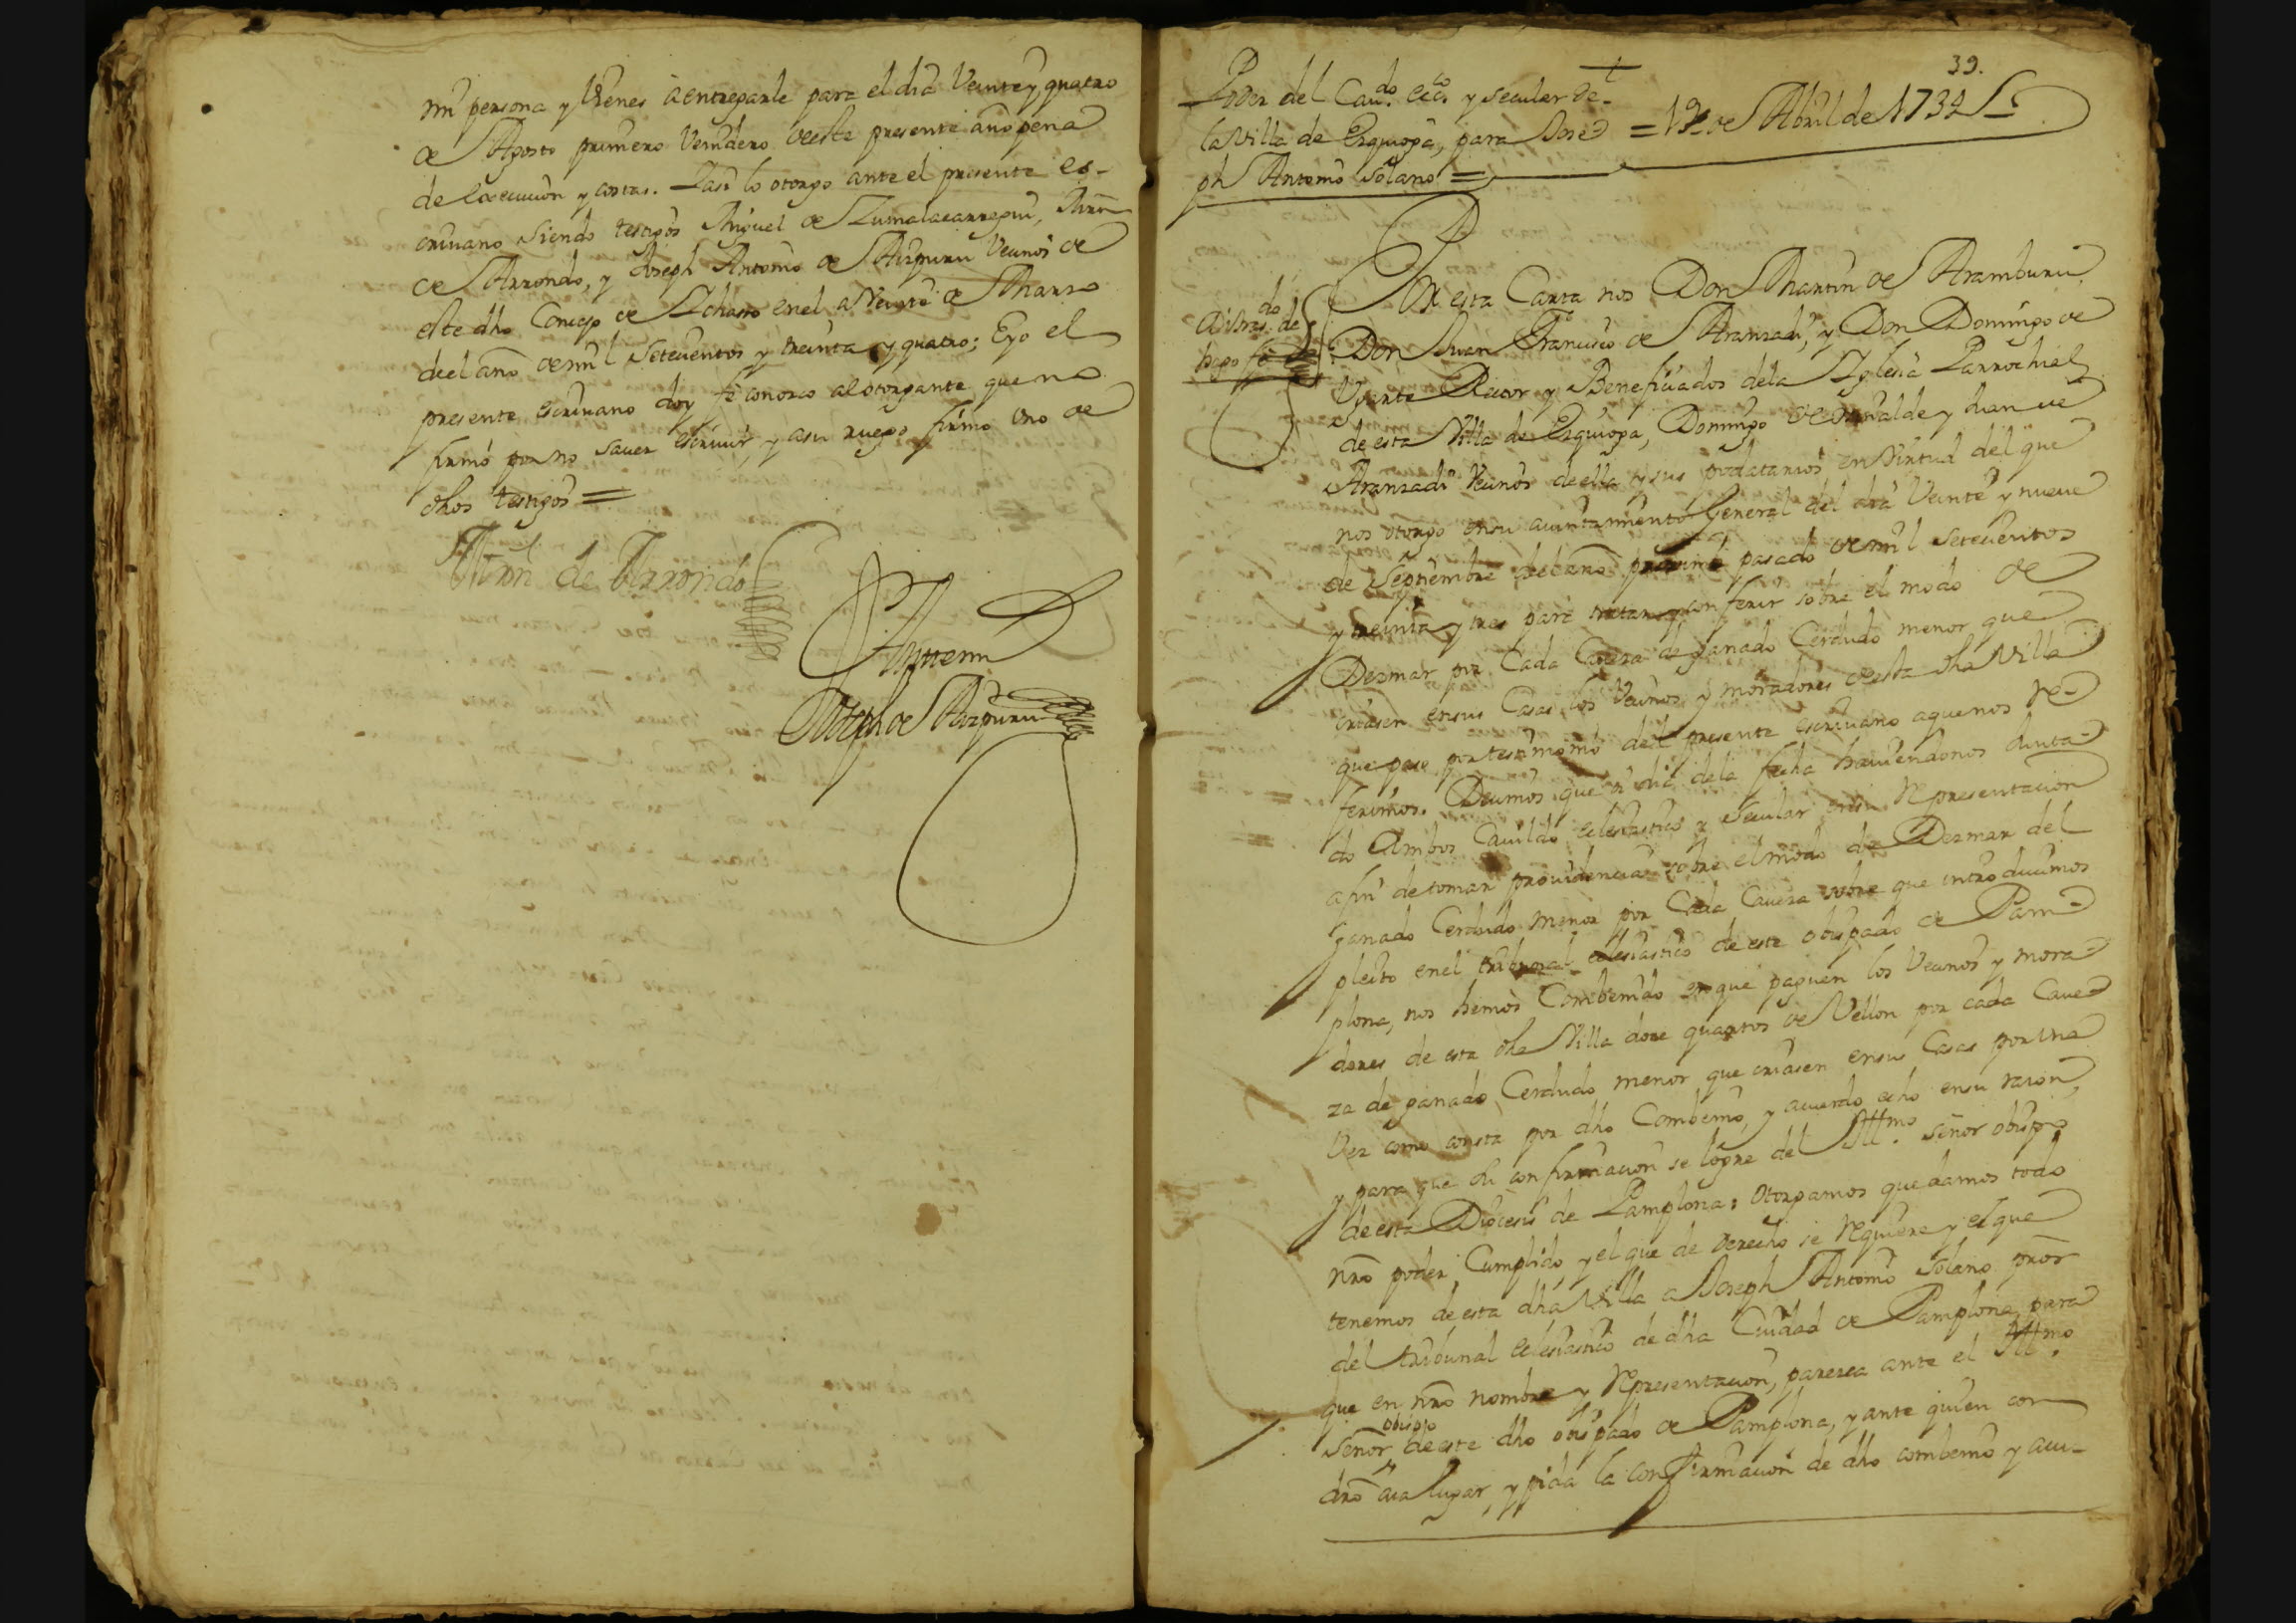 mi persona y vienes a entregarle para el dia veinte y quatro
de Agosto primero venidero de este presente año pena
de execucion y costas. Y asi lo otorgo ante el presente es-
crivano siendo testigos Miguel de Zumalacarregui, Mrñ
de Arrondo, y Joseph Antonio de Aizpuru vecinos de
este dho Concejo de Ichaso en el a veinte de Marzo
de el año de mil setecientos y treinta y quatro; E yo el
presente escrivano doy fe conozco al otorgante que no
firmó por no saver escrivir, y a su ruego firmo uno de
dhos testigos =
Mrñ de Arrondo
Ante mi
Joseph de Aizpuru
39.
Poder del Cavdo ecco y secular de
la Villa de Ezquioga, para Jose
ph Antonio Solano =
= 19 de Abril de 1734
do de
hago fe
Por esta Carta nos Don Martin de Aramburu
Don Juan Francisco de Aranzadi, y Don Domingo de
Ugarte Retor y Beneficiados de la Iglesia Parrochial
de esta Villa de Ezquioga, Domingo de y Juan de
Aranzadi vecinos de ella y sus podatarios en virtud del que
nos otorgo en su aiuntamiento General del dia veinte y nueve
de Septiembre del año proximo pasado de mil setecientos
y treinta y tres para tratar y conferir sobre el modo de
Dezmar por Cada Caveza de ganado Cerdudo menor que
criasen en sus Casas los vecinos y moradores de esta dha Villa
que paso por testimonio del presente escrivano a que nos re-
ferimos. Decimos que oi dia de la fecha haviendonos junta-
do Ambos Cavildo eclesiastico y Secular en su representacion
a fin de tomar providencia sobre el modo de Dezmar del
ganado Cerdudo menor por Cada Caveza sobre que introducimos
pleito en el tribunal eclesiastico de este obispado de Pam-
plona, nos hemos Combenido en que paguen los vecinos y mora-
dores de esta dha Villa doze quartos de Vellon por cada Cave-
za de ganado Cerdudo menor que criasen en sus Casas por una
vez como consta por dho Combenio, y acuerdo echo en su razon,
y para que su confirmacion se logre del Illmo. señor obispo
de esta Diocesis de Pamplona: Otorgamos que damos todo
nro poder Cumplido y el que de derecho se requiere y el que
tenemos de esta dha Villa a Joseph Antonio Solano pror
del tribunal eclesiastico de dha Ciudad de Pamplona, para
que en nro nombre y representacion, parezca ante el Illmo.
Señor obispo de este dho obispado de Pamplona, y ante quien con
dro aia lugar, y pida la confirmacion de dho combenio y acu-